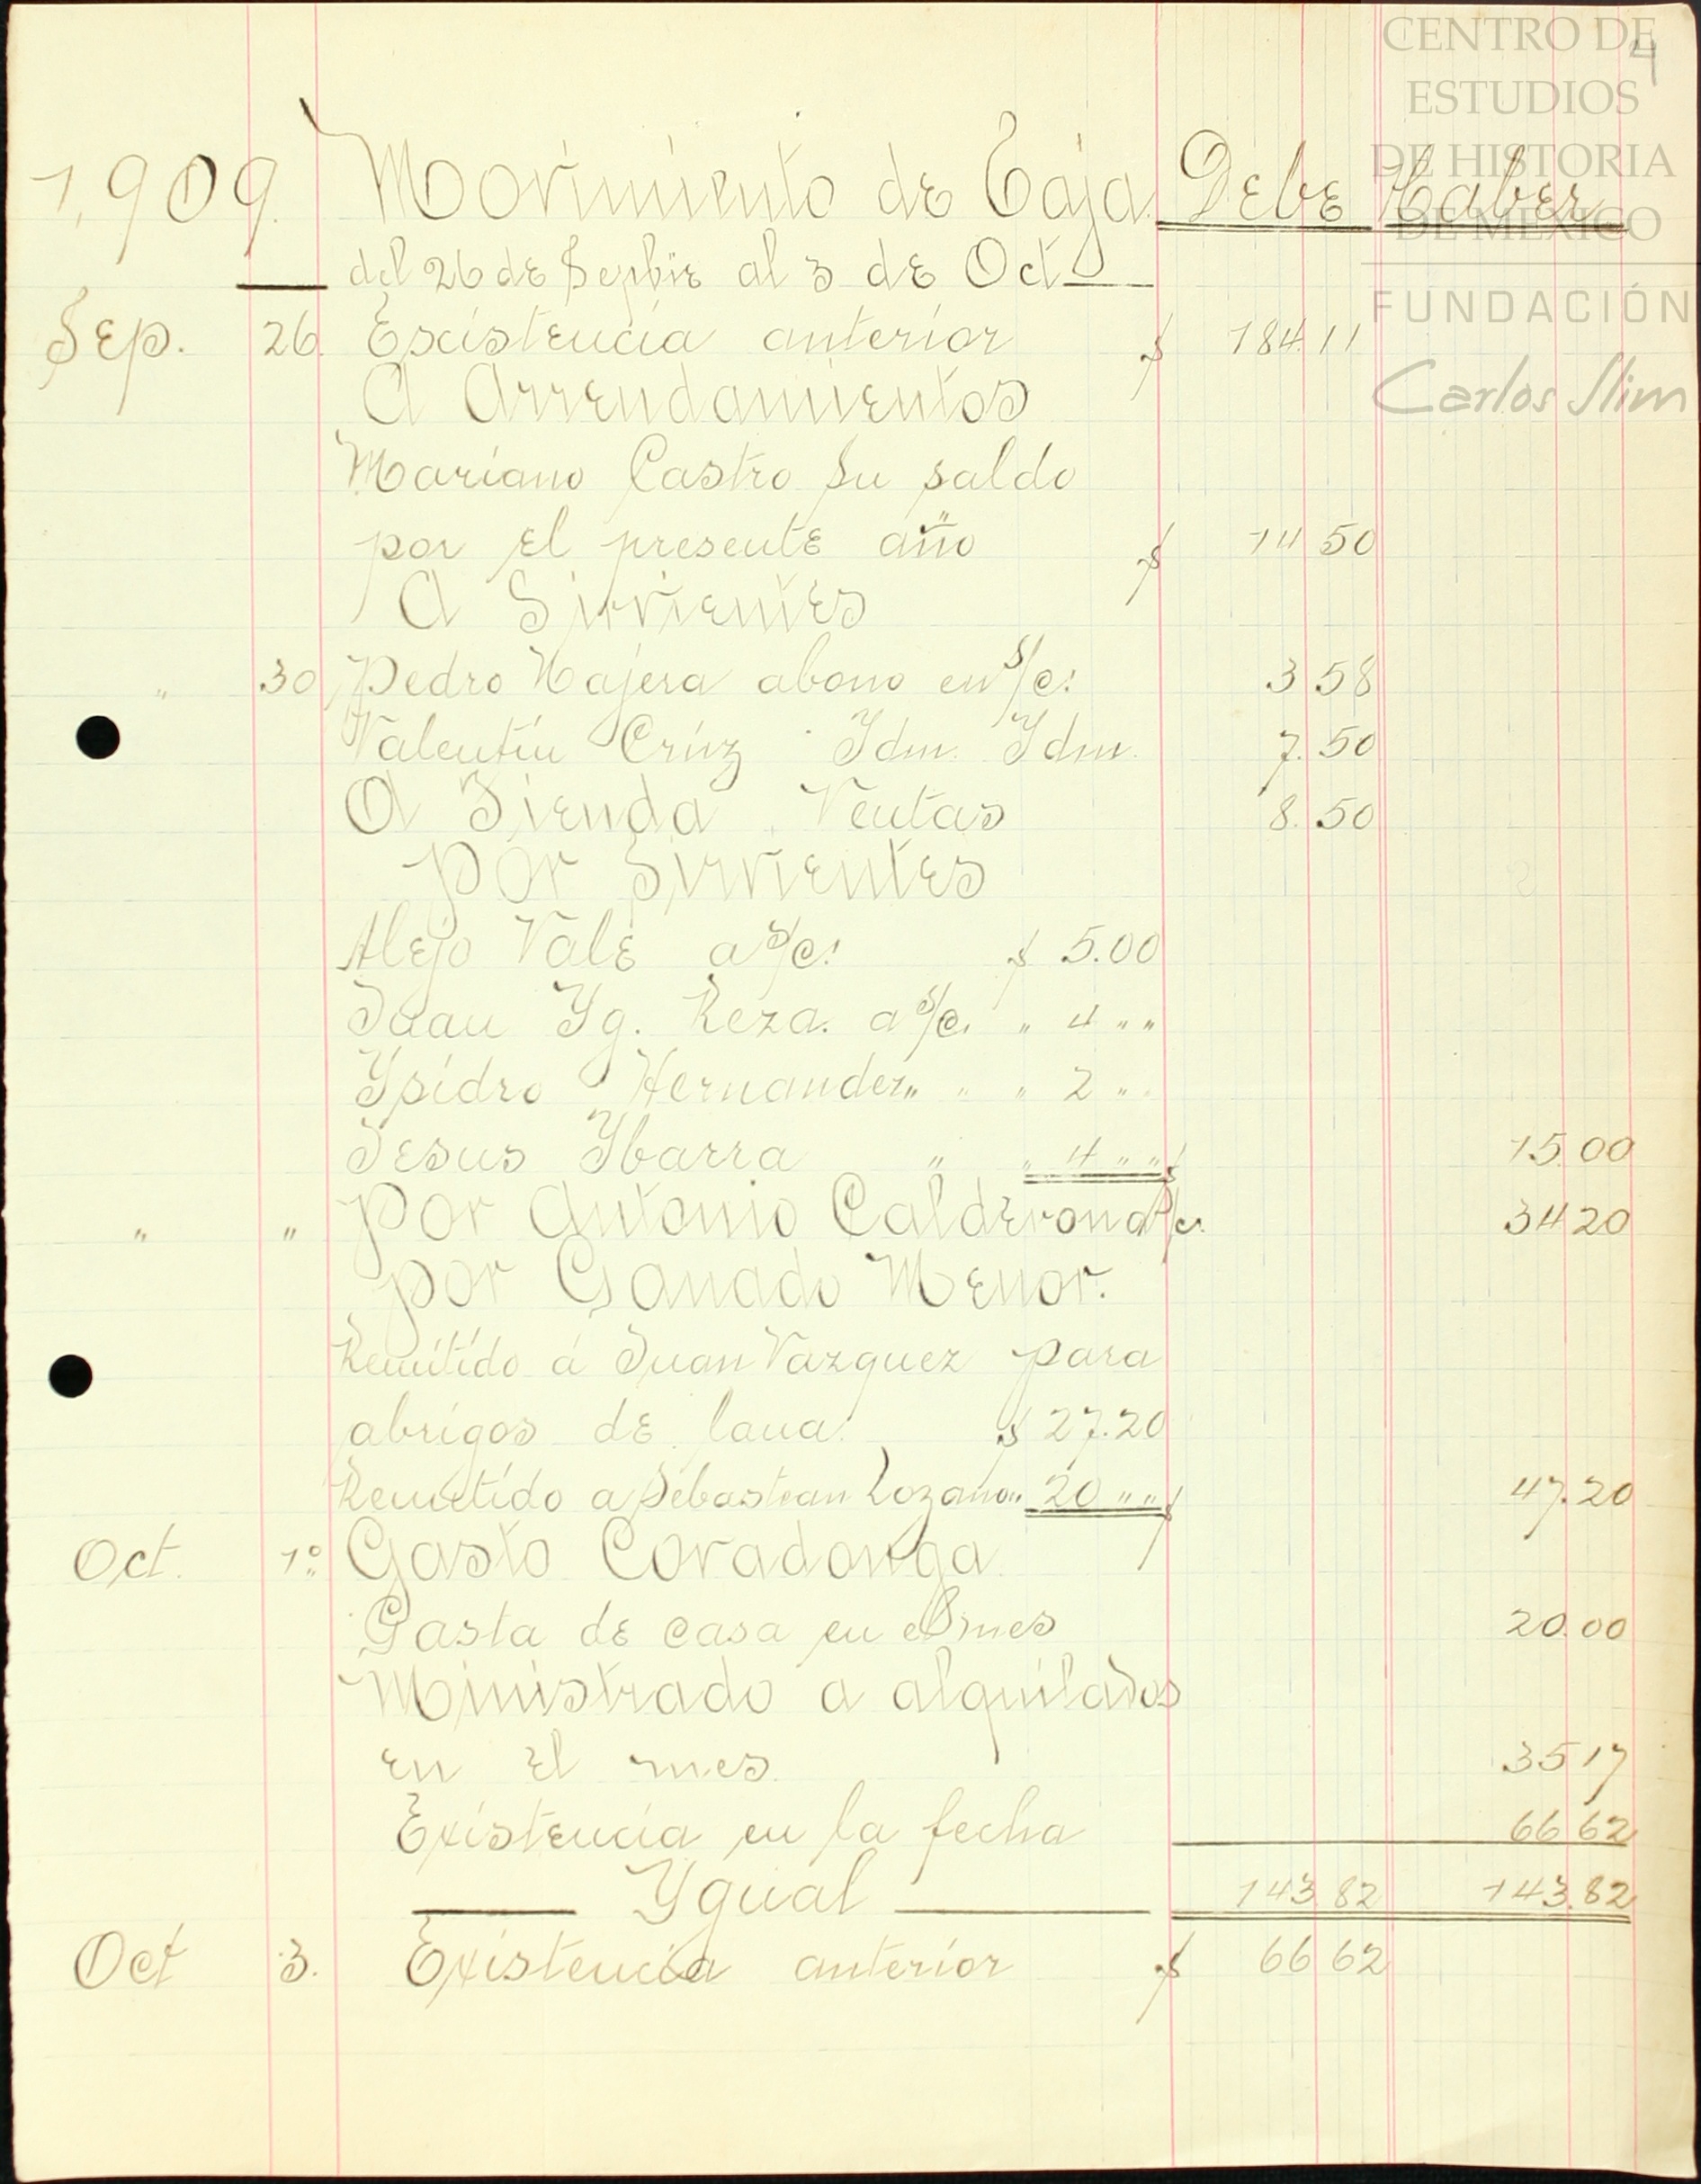 CENTRO DE
ESTUDIOS
DE HISTORIA
DE MÉXICO
FUNDACIÓN
Carlos Slim
4
1,909. Movimiento de Caja Debe Haber
del 26 de Sepbre al 3 de Oct
Sep. 26. Escistencia anterior $ 184.11
A Arrendamientos
Mariano Castro Su saldo
por el presente año $ 14 50
A Sirvientes
" 30 Pedro Najera abono en s/c. 3 58
Valentin Crúz Idm. Idm. 7.50
A Tienda Ventas 8.50
por Sirvientes
Alejo Vale a s/c. $ 5.00
Juan Yg. Reza. a s/c. " 4 " "
Ysidro Hernandez " " " 2 " "
Jesus Ybarra " " 4 " " $ 15.00
" " por Antonio Calderon a s/c. 34 20
por Ganado Menor.
Remitido á Juan Vazquez para
abrigos de lana. $ 27.20
Remetido a Sebastean Lozano " 20 " " $ 47.20
Oct. 1º Gasto Covadonga
Gasta de casa en el mes 20.00
Ministrado a alquilados
en el mes 35 17
Existencia en la fecha 66 62
Ygual 143 82 143.82
Oct 3. Existencia anterior $ 66 62